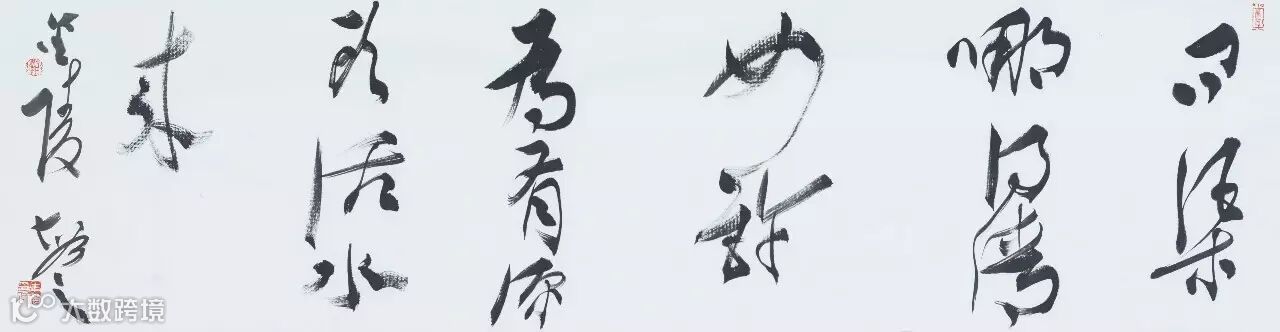 问渠
哪得清
如许
为有源
头活水
来
金陵
大数跨境